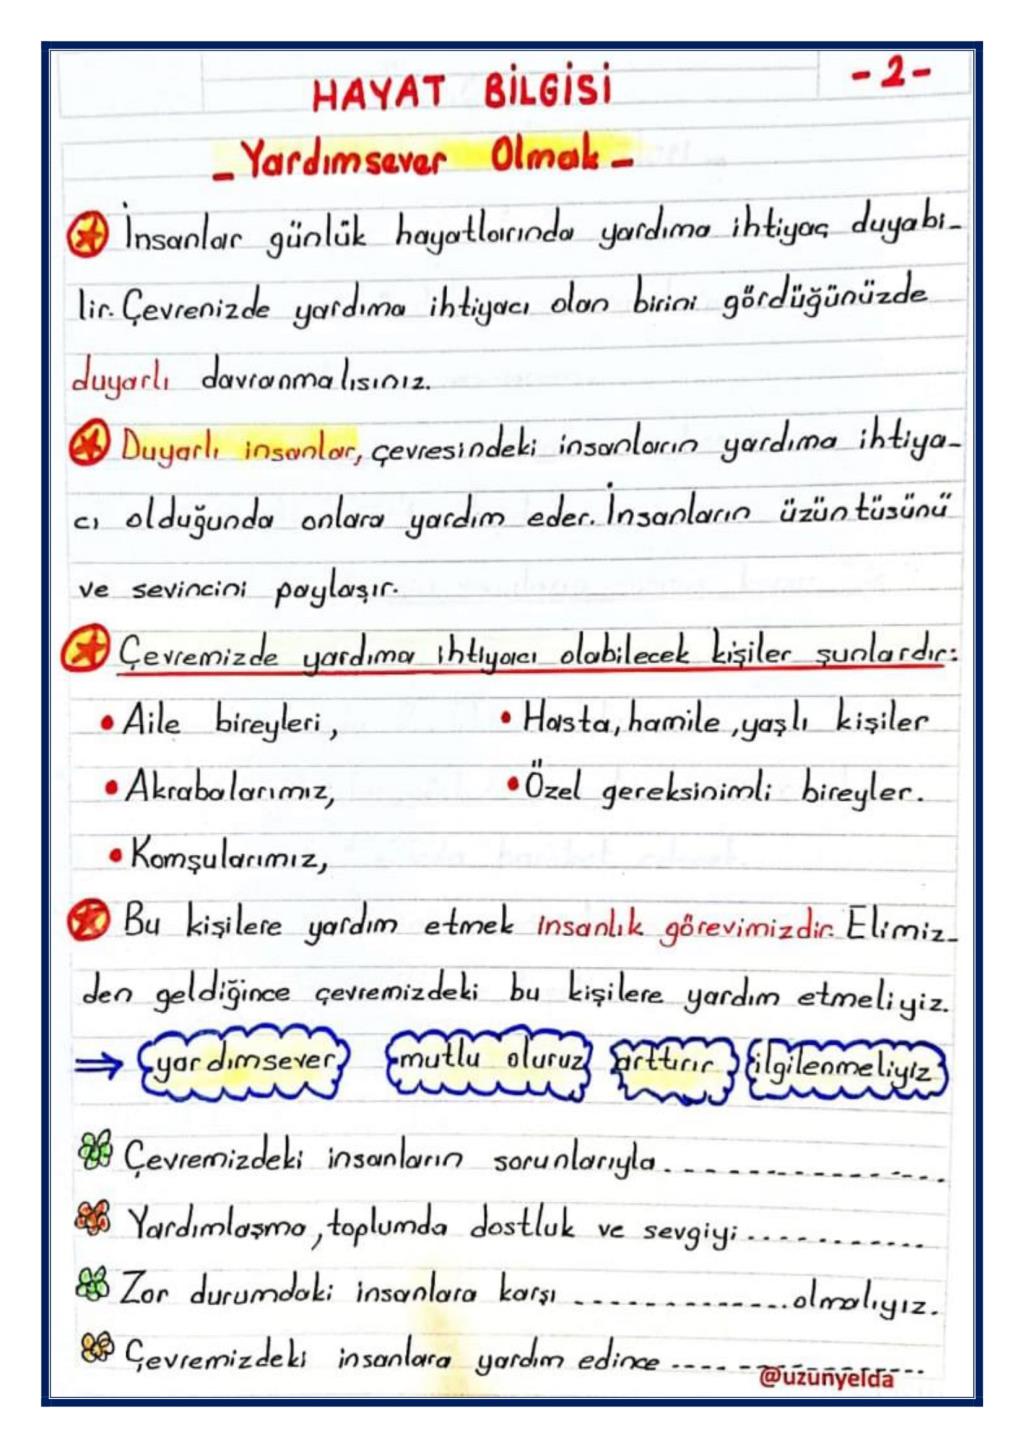 HAYAT BİLGİSİ
-2-
_Yardımsever Olmak_
İnsanlar günlük hayatlarında yardıma ihtiyaç duyabi-
lir. Çevrenizde yardıma ihtiyacı olan birini gördüğünüzde
duyarlı davranmalısınız.
Duyarlı insanlar, çevresindeki insanların yardıma ihtiya-
cı olduğunda onlara yardım eder. İnsanların üzüntüsünü
ve sevincini paylaşır.
Çevremizde yardıma ihtiyacı olabilecek kişiler şunlardır:
• Aile bireyleri,
• Hasta, hamile, yaşlı kişiler
• Akrabalarımız,
• Özel gereksinimli bireyler.
• Komşularımız,
Bu kişilere yardım etmek insanlık görevimizdir. Elimiz-
den geldiğince çevremizdeki bu kişilere yardım etmeliyiz.
⇒ yardımsever mutlu oluruz arttırır ilgilenmeliyiz
Çevremizdeki insanların sorunlarıyla ................
Yardımlaşma, toplumda dostluk ve sevgiyi ............
Zor durumdaki insanlara karşı ............... olmalıyız.
Çevremizdeki insanlara yardım edince ................
@uzunyelda